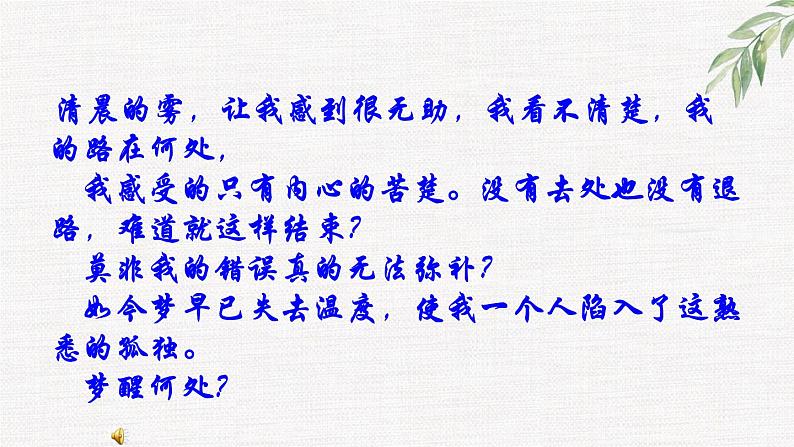 清晨的雾，让我感到很无助，我看不清楚，我
的路在何处，
我感受的只有内心的苦楚。没有去处也没有退
路，难道就这样结束？
莫非我的错误真的无法弥补？
如今梦早已失去温度，使我一个人陷入了这熟
悉的孤独。
梦醒何处？